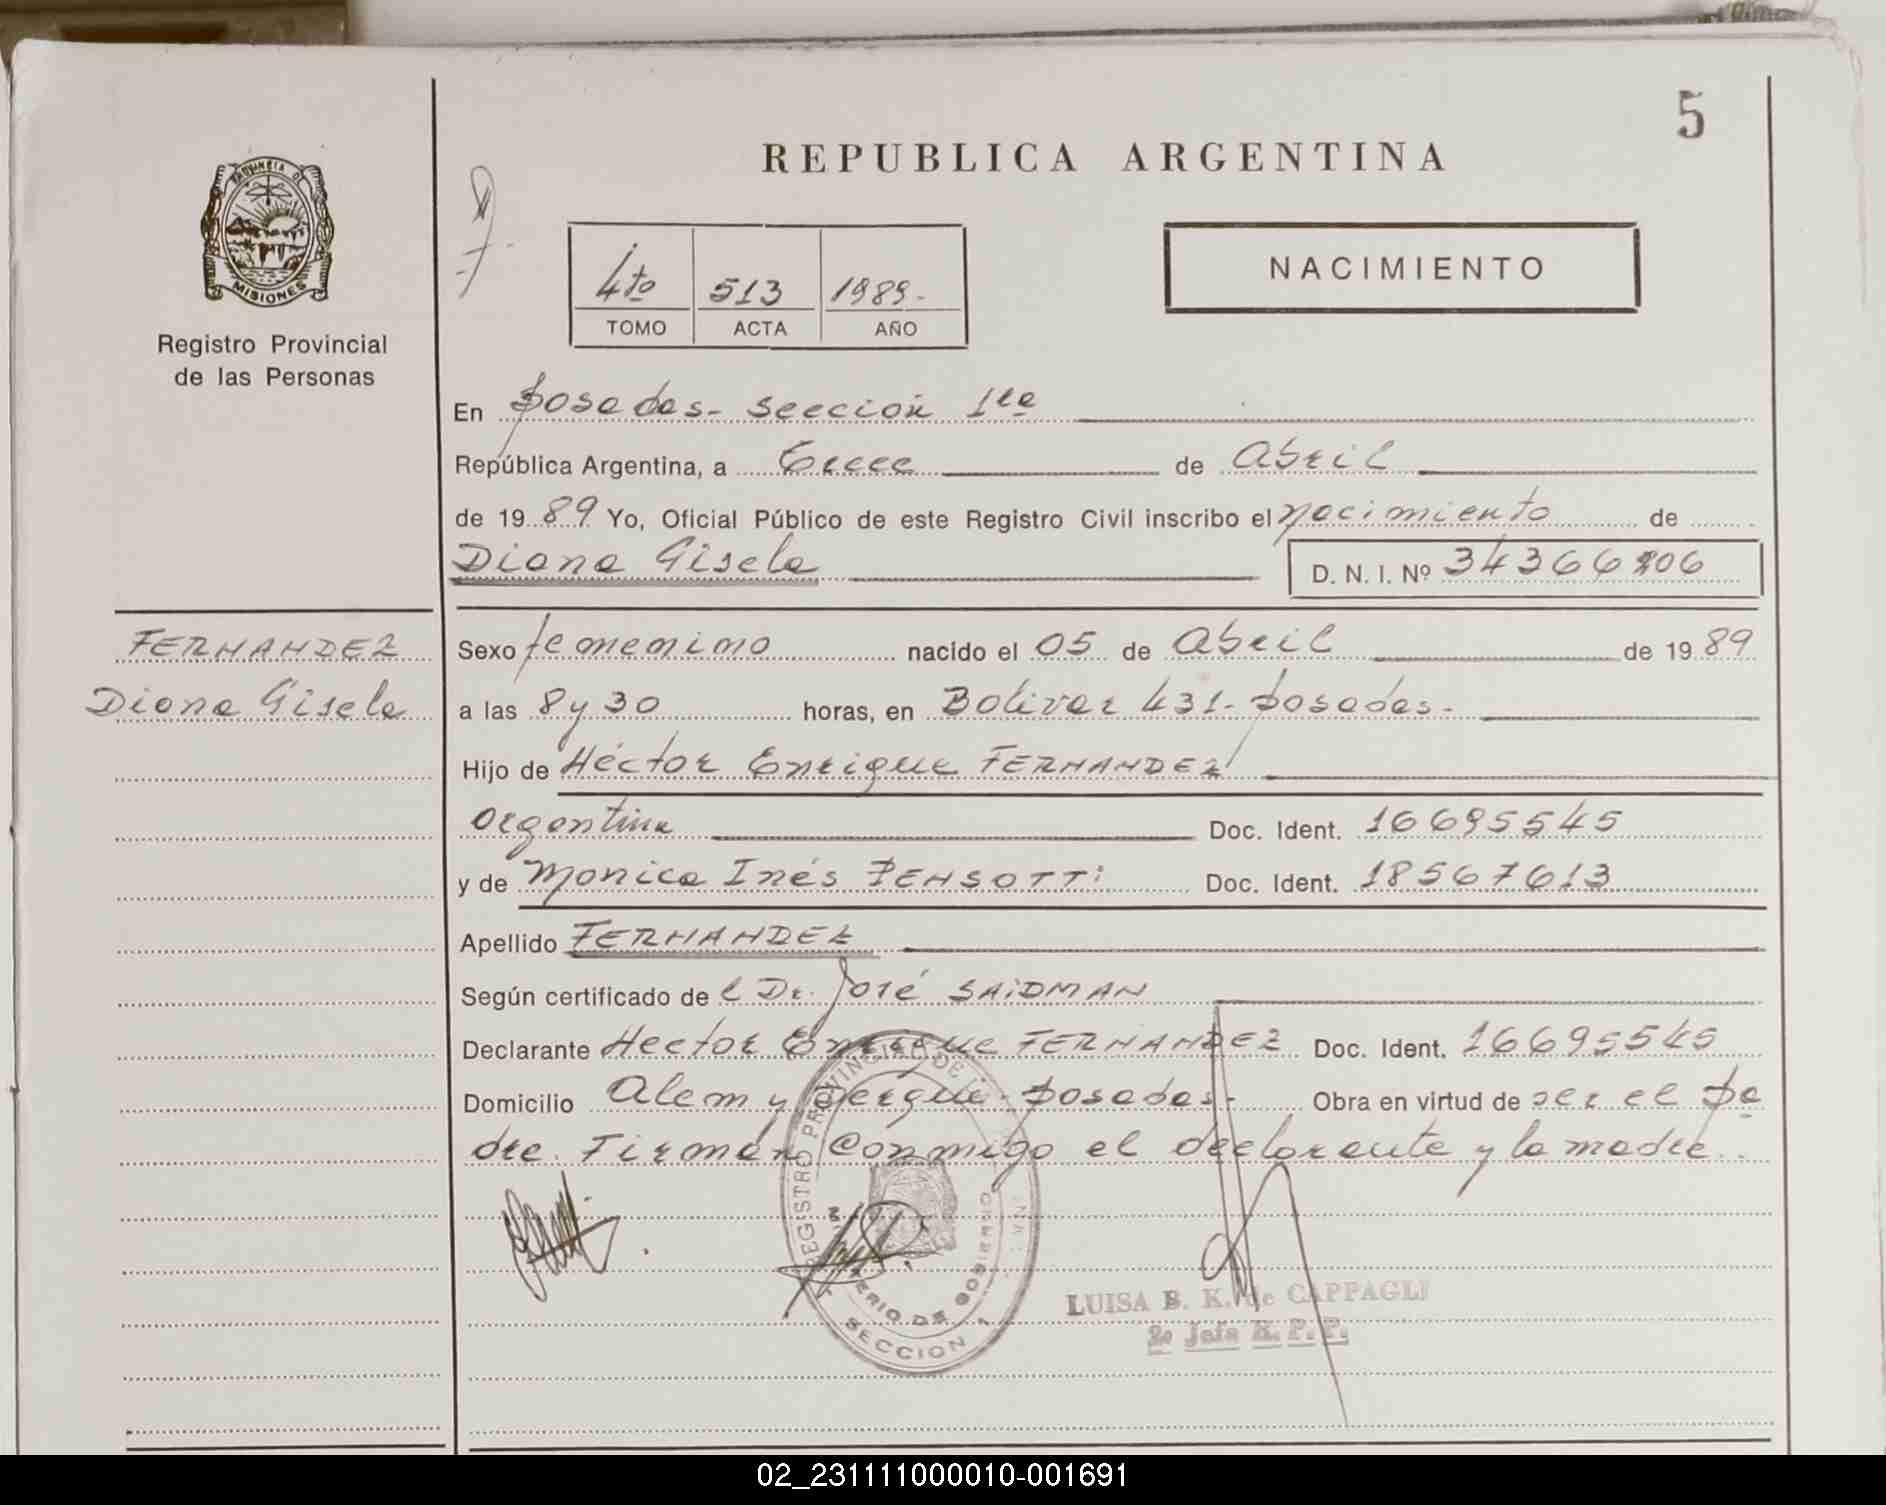 5
REPUBLICA ARGENTINA
PROVINCIA DE
MISIONES
Registro Provincial
de las Personas
4to 513 1989.-
TOMO ACTA AÑO
NACIMIENTO
En Posadas - Sección 1ra
República Argentina, a Trece de Abril
de 1989 Yo, Oficial Público de este Registro Civil inscribo el nacimiento de
Diana Gisela D. N. I. Nº
FERNANDEZ
Diana Gisela
Sexo femenino nacido el 05 de Abril de 1989
a las 8 y 30 horas, en Bolivar 431 - Posadas -
Hijo de Héctor Enrique FERNANDEZ
Argentina Doc. Ident. 16695545
y de Monica Inés PENSOTTI Doc. Ident. 18567613
Apellido FERNANDEZ
Según certificado de l Dr. José SAIDMAN
Declarante Hector Enrique FERNANDEZ Doc. Ident. 16695545
Domicilio Alem y Posadas - Obra en virtud de ser el Pa
dre. Firman Conmigo el declarante y la madre.
REGISTRO PROVINCIAL DE
DE GOBIERNO
SECCION 1
LUISA B. K. de CAPPAGLI
2º Jefe R. P. P.
02_231111000010-001691